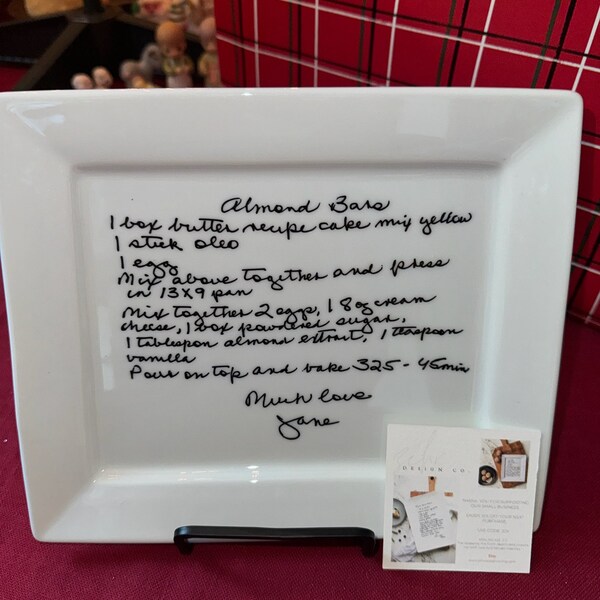 Almond Bars
1 box butter recipe cake mix yellow
1 stick oleo
1 egg
Mix above together and press
in 13x9 pan
Mix together 2 eggs, 1 8oz cream
cheese, 1 box powdered sugar,
1 tablespoon almond extract, 1 teaspoon
vanilla
Pour on top and bake 325 - 45min
Much love
Jane
DESIGN CO.